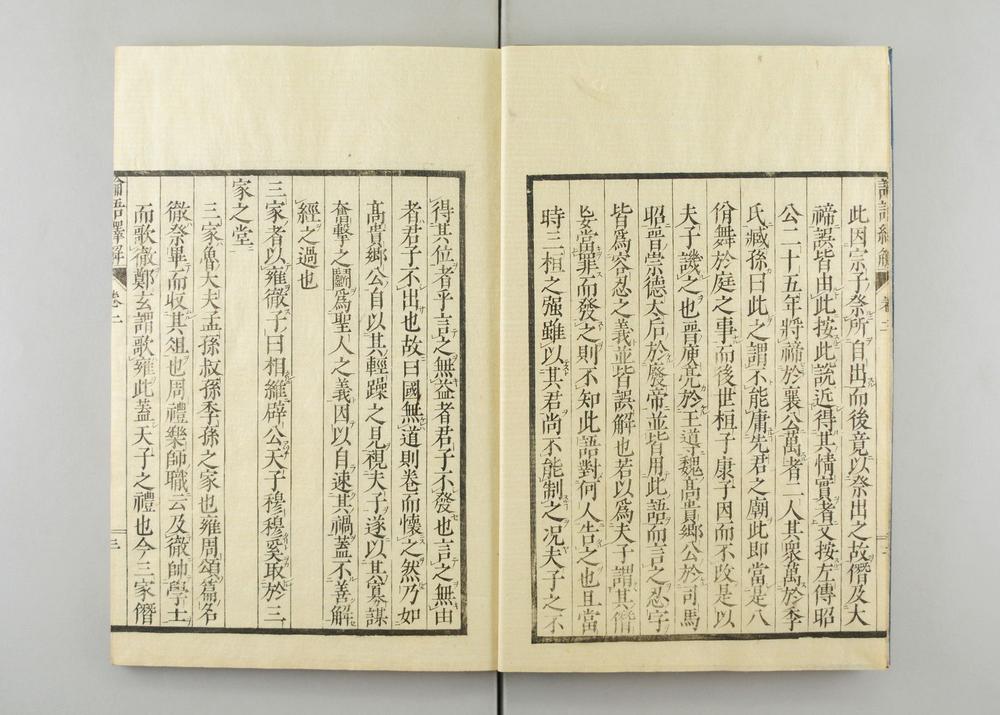 此因宗子祭所自出而後竟以祭出之故僭及大
禘誤皆由此按此說近得其情實者又按左傳昭
公二十五年將禘於襄公萬者二人其衆萬於季
氏臧孫曰此之謂不能庸先君之廟此即當是八
佾舞於庭之事而後世桓子康子因而不改是以
夫子譏之也晉庾亮於王導魏高貴鄉公於司馬
昭晉崇德太后於廢帝並皆用此語而言之忍字
皆爲容忍之義並皆誤解也若以爲夫子謂其僭
妄當罪而發之則不知此語對何人告之也且當
時三桓之强雖以其君尚不能制之况夫子之不
卷二
得其位者乎言之無益者君子不發也言之無由
者君子不出也故曰國無道則卷而懷之然乃如
高貴鄉公自以其輕躁之見視夫子遂以其寡謀
奮擊之鬭爲聖人之義因以自速其禍蓋不善解
經之過也
三家者以雍徹子曰相維辟公天子穆穆奚取於三
家之堂
三家魯大夫孟孫叔孫季孫之家也雍周頌篇名
徹祭畢而收其俎也周禮樂師職云及徹帥學士
而歌徹鄭玄謂歌雍此蓋天子之禮也今三家僭
卷二
三